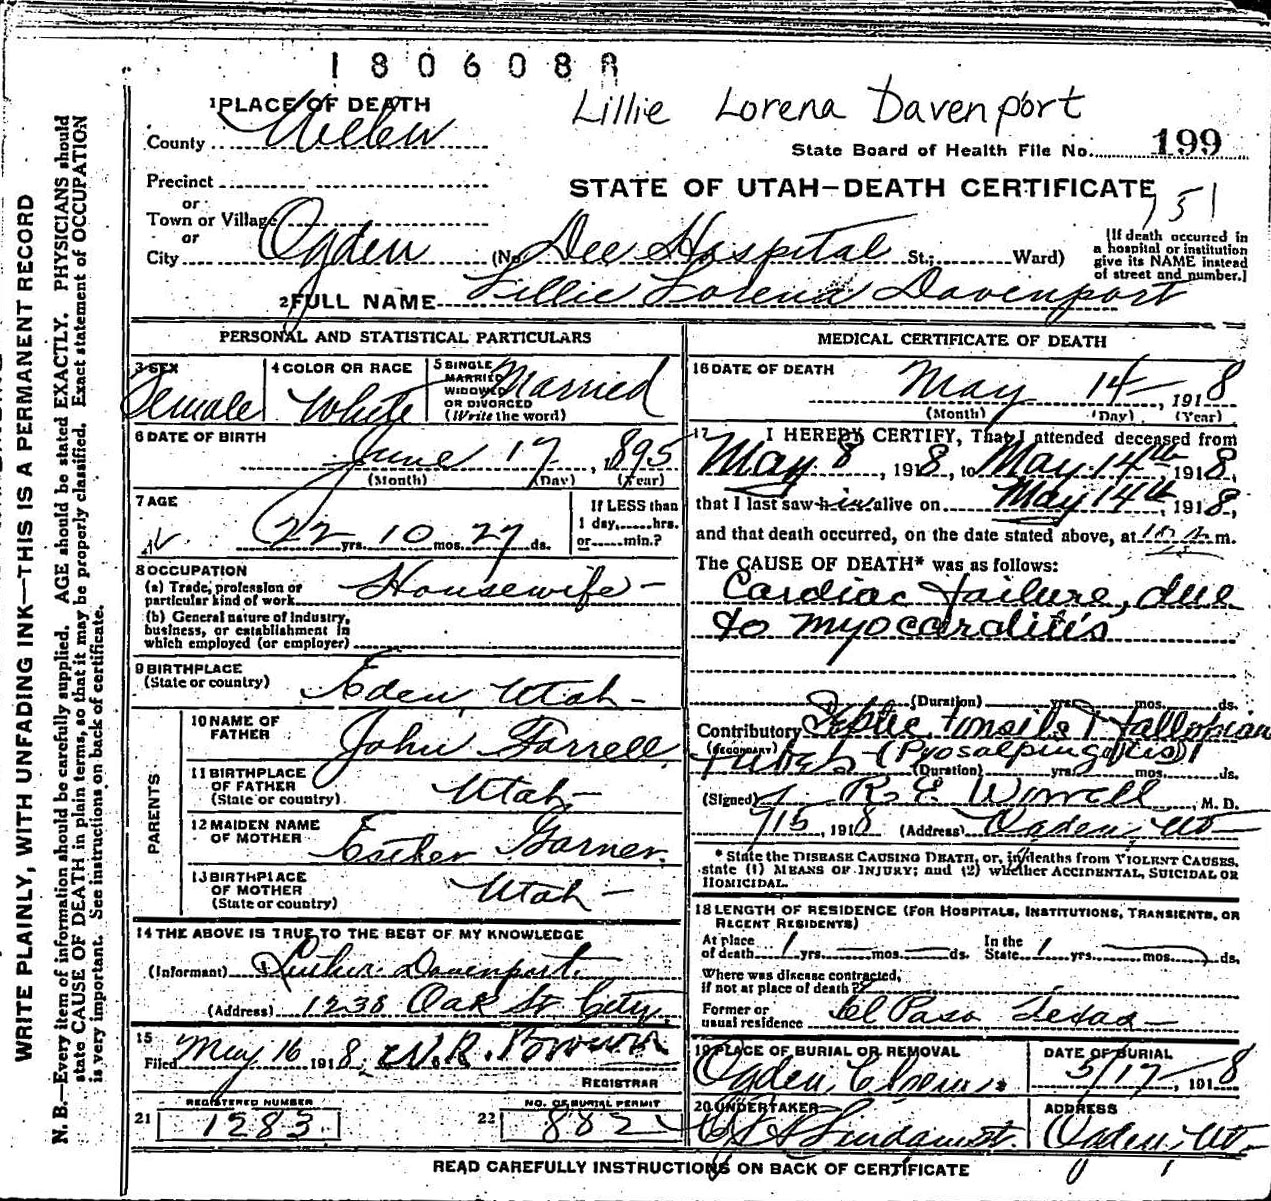 1806088
Lillie Lorena Davenport
1 PLACE OF DEATH
County Weber
State Board of Health File No. 199
Precinct
STATE OF UTAH—DEATH CERTIFICATE
151
or
Town or Village
or
City Ogden (No. Dee Hospital St.; Ward)
[If death occurred in a hospital or institution give its NAME instead of street and number.]
2 FULL NAME Lillie Lorena Davenport
PERSONAL AND STATISTICAL PARTICULARS
3 SEX Female
4 COLOR OR RACE White
5 SINGLE MARRIED WIDOWED OR DIVORCED (Write the word) Married
6 DATE OF BIRTH
June 17, 1895
(Month) (Day) (Year)
7 AGE
22 yrs. 10 mos. 27 ds.
If LESS than
1 day,......hrs.
or......min.?
8 OCCUPATION
(a) Trade, profession or
particular kind of work Housewife—
(b) General nature of industry,
business, or establishment in
which employed (or employer)
9 BIRTHPLACE
(State or country) Eden, Utah—
PARENTS
10 NAME OF
FATHER John Farrell
11 BIRTHPLACE
OF FATHER
(State or country) Utah—
12 MAIDEN NAME
OF MOTHER Esther Garner.
13 BIRTHPLACE
OF MOTHER
(State or country) Utah—
14 THE ABOVE IS TRUE TO THE BEST OF MY KNOWLEDGE
(Informant) Davenport.
(Address) 1238 Oak St City.
15
Filed May 16 1918, W.R. Brown
REGISTRAR
REGISTERED NUMBER
21 1283
NO. OF BURIAL PERMIT
22 882
MEDICAL CERTIFICATE OF DEATH
16 DATE OF DEATH
May 14—, 1918
(Month) (Day) (Year)
17 I HEREBY CERTIFY, That I attended deceased from
May 8, 1918, to May 14th 1918,
that I last saw him alive on May 14th, 1918,
and that death occurred, on the date stated above, at m.
The CAUSE OF DEATH* was as follows:
Cardiac failure, due
to myocarditis
(Duration) yrs. mos. ds.
Contributory Septic tonsils & Fallopian
(SECONDARY) tubes (Pyosalpingitis)
(Duration) yrs. mos. ds.
(Signed) R. E. Worrell, M. D.
/15, 1918 (Address) Ogden, Ut—
* State the DISEASE CAUSING DEATH, or, in deaths from VIOLENT CAUSES,
state (1) MEANS OF INJURY; and (2) whether ACCIDENTAL, SUICIDAL OR
HOMICIDAL.
18 LENGTH OF RESIDENCE (FOR HOSPITALS, INSTITUTIONS, TRANSIENTS, OR
RECENT RESIDENTS)
At place
of death 1 yrs. — mos. — ds.
In the
State 1 yrs. mos. ds.
Where was disease contracted,
if not at place of death?
Former or
usual residence El Paso Texas—
19 PLACE OF BURIAL OR REMOVAL
Ogden,
DATE OF BURIAL
5/17—, 1918
20 UNDERTAKER
Lindquist.
ADDRESS
Ogden, Ut—
READ CAREFULLY INSTRUCTIONS ON BACK OF CERTIFICATE
WRITE PLAINLY, WITH UNFADING INK—THIS IS A PERMANENT RECORD
N. B.—Every item of information should be carefully supplied. AGE should be stated EXACTLY. PHYSICIANS should
state CAUSE OF DEATH in plain terms, so that it may be properly classified. Exact statement of OCCUPATION
is very important. See instructions on back of certificate.